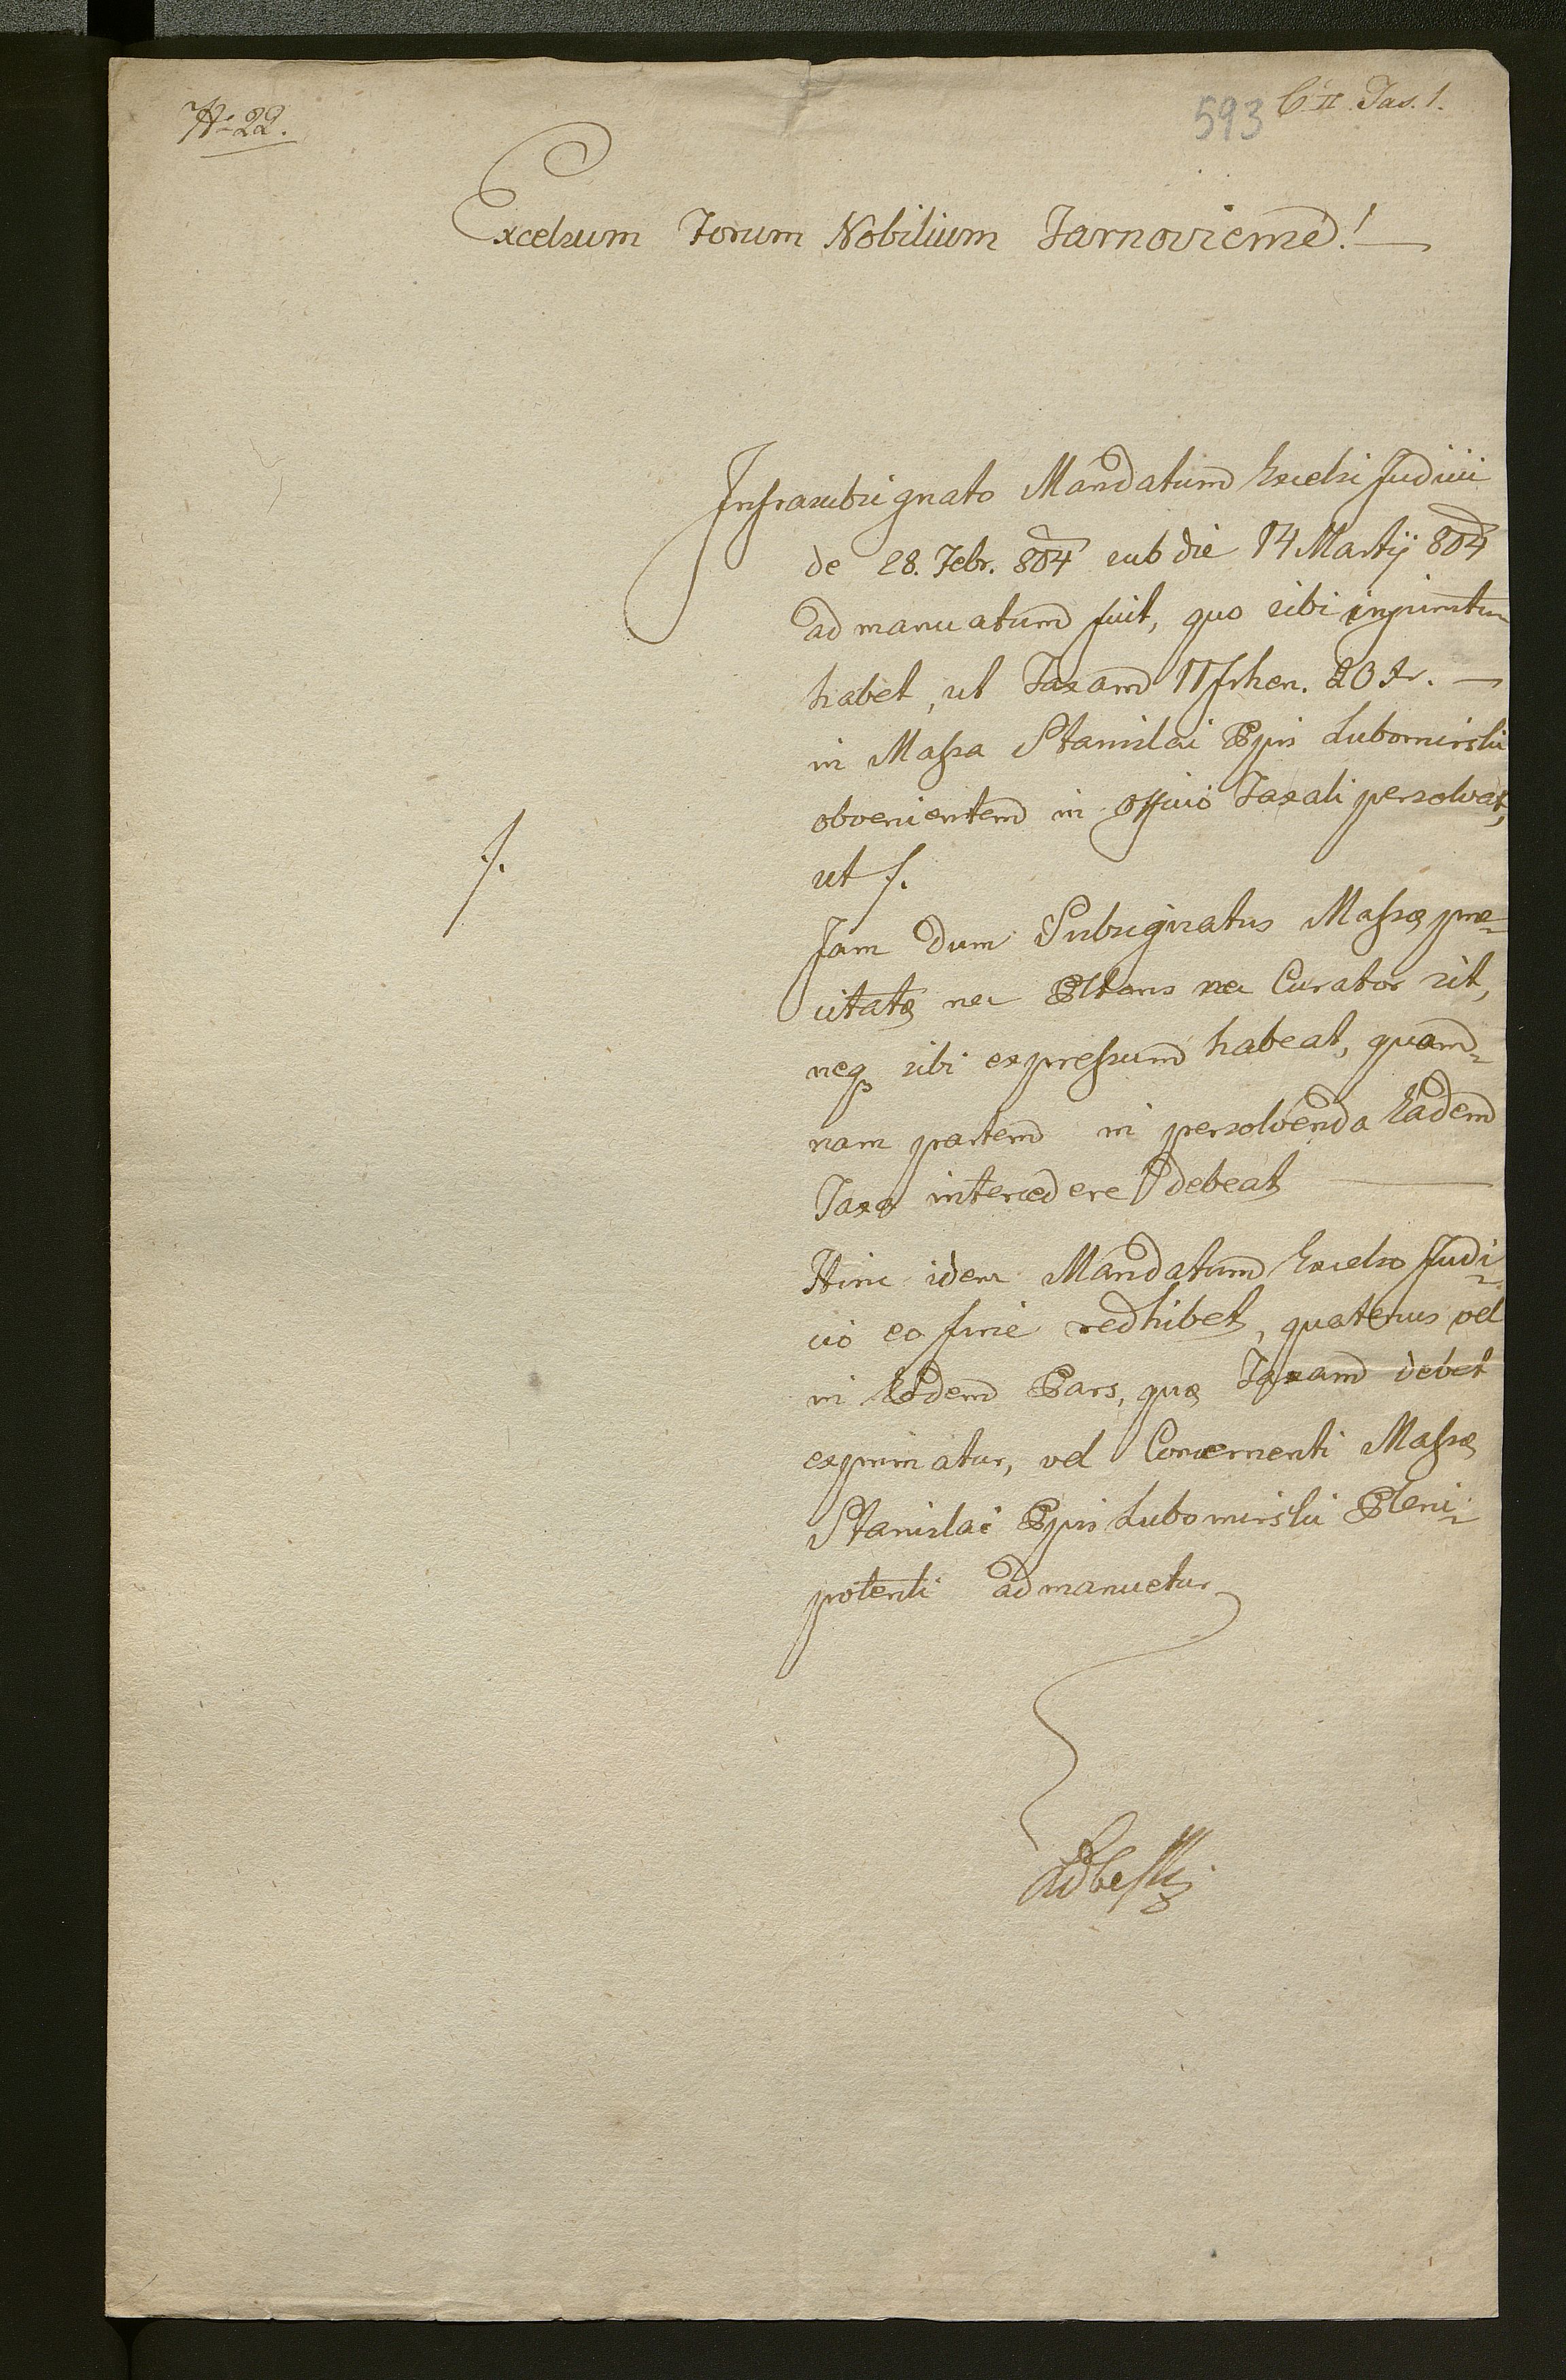 No 22.
593 C. II. Fas. 1.
Excelsum Forum Nobilium Tarnoviense!
Infrasubsignato Mandatum Excelsi Judicii
de 28. Febr. 804 sub die 14 Martij 804
admanuatum fuit, quo sibi injunctum
habet, ut Taxam 11 frhen. 20 Xr. —
in Massa Stanislai Ppis Lubomirski
obvenientem in Officio Taxali persolvat,
ut ./.
./.
Jam dum Subsignatus Massæ præ-
citatæ nec Pltens nec Curator sit,
neq3 sibi expressum habeat, quam-
nam partem in persolvenda Eadem
Taxa intercedere debeat
Hinc idem Mandatum Excelso Judi-
cio eo fine redhibet, quatenus vel
in Eodem Pars, quæ Taxam debet
exprimatur, vel Concernenti Massæ
Stanislai Ppis Lubomirski Pleni-
potenti admanuetur